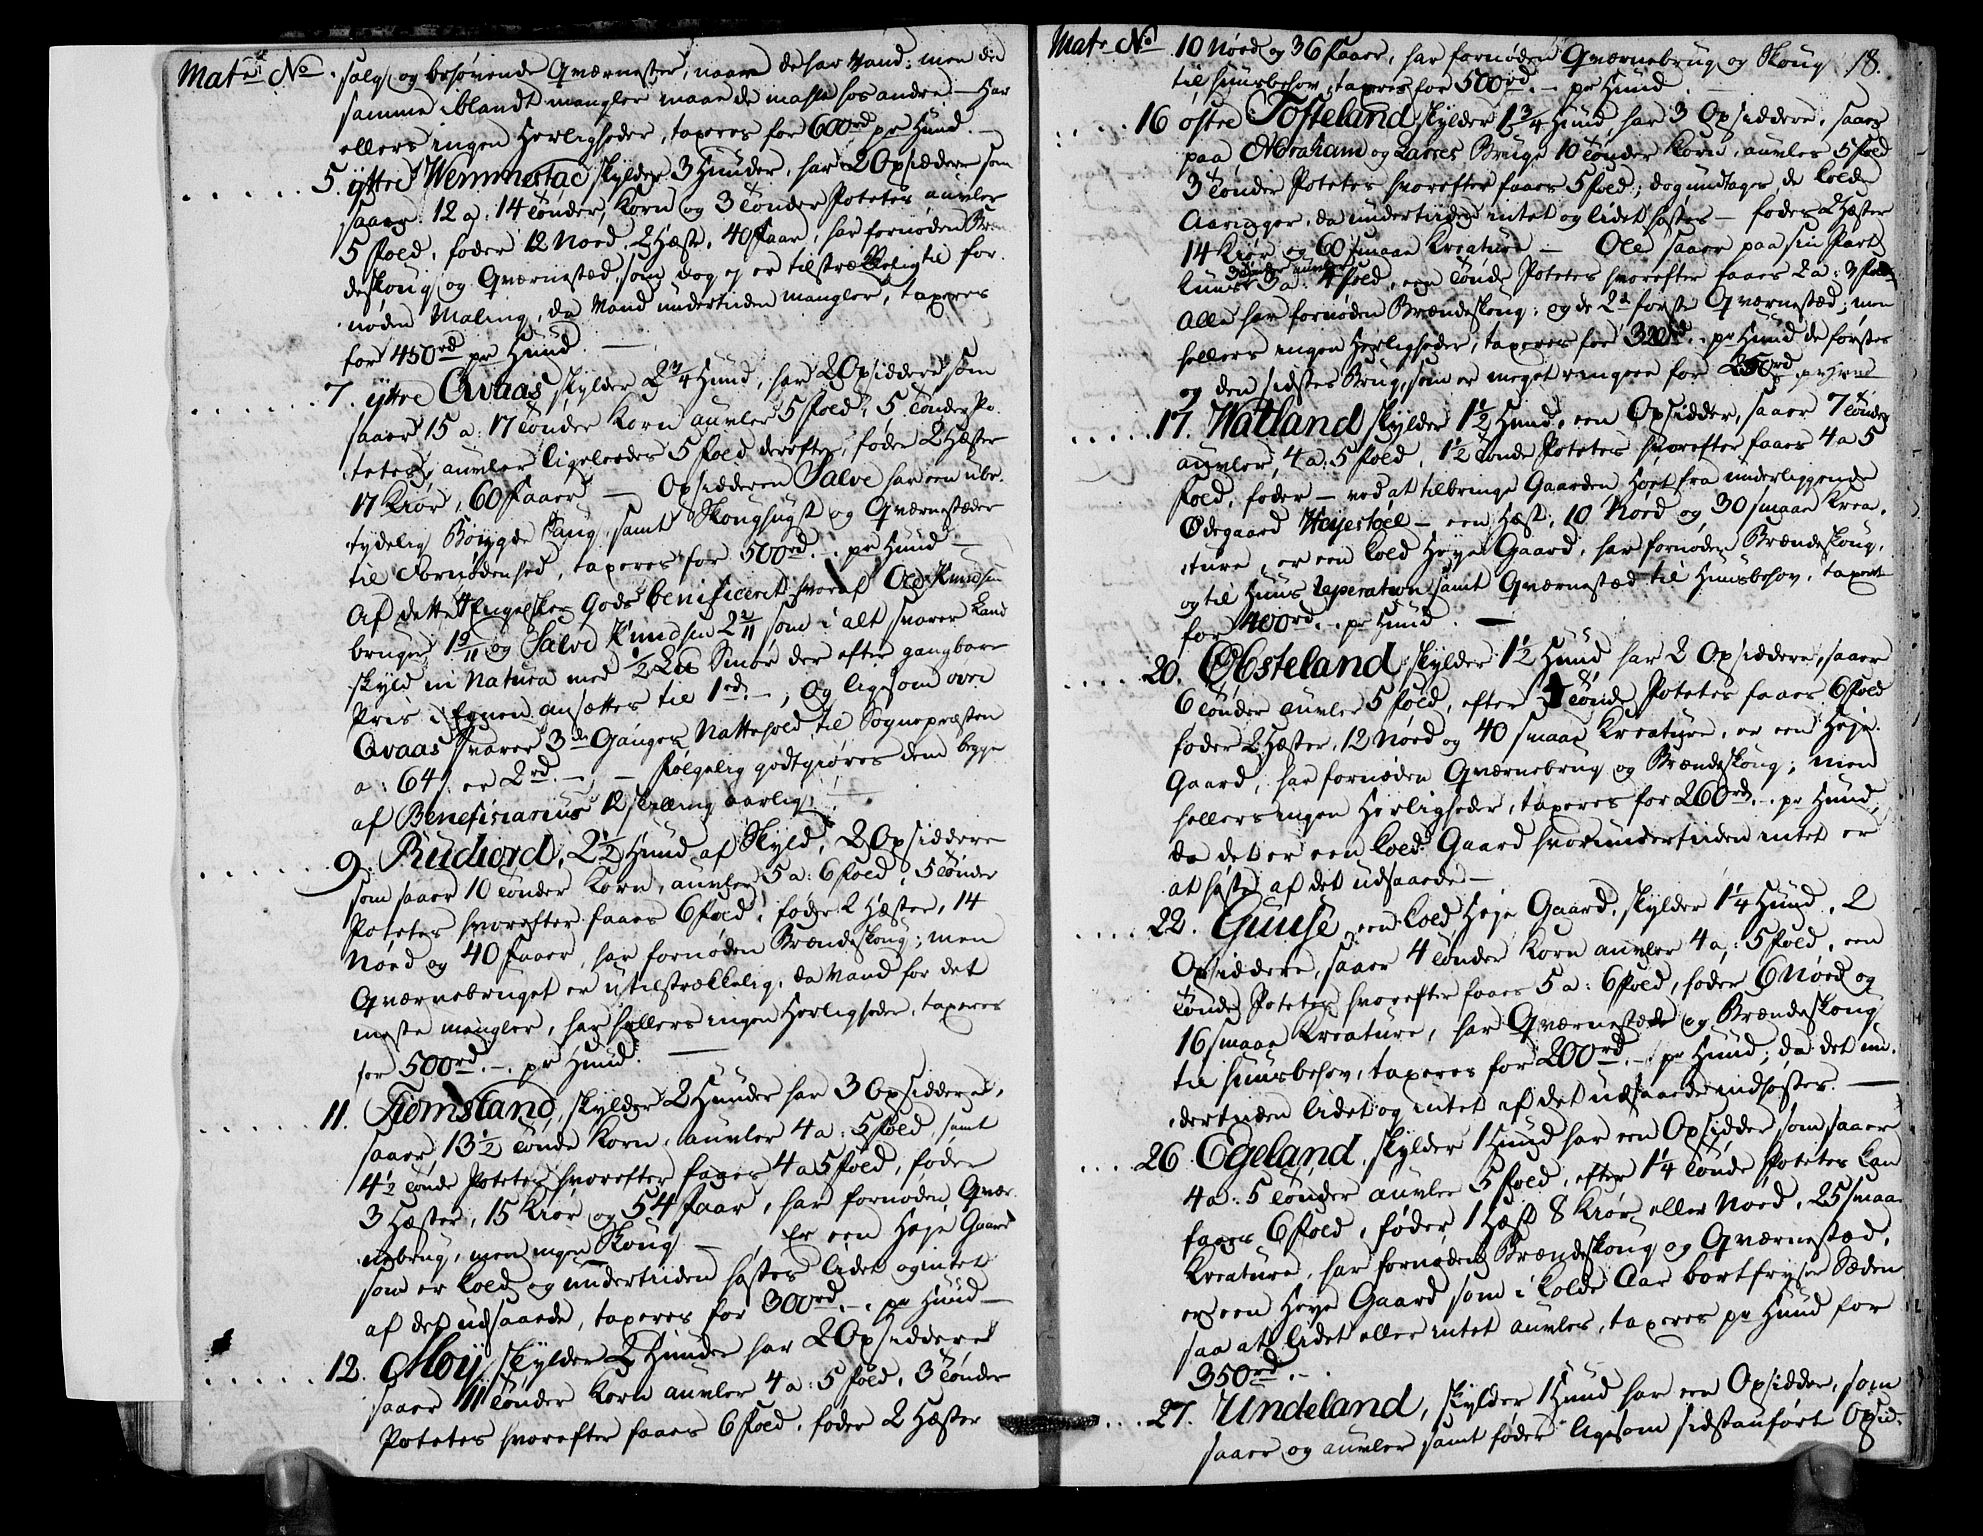 Matr: No.
salg og behøvende Qværnestæder, naar de har Vand; men da
samme iblandt mangler maae de mahle hos andre — Har
ellers ingen Herligheder, taxeres for 600rd pr Hund. —
5. ÿttre Wemmestad skylder 3 Hunder, har 2 Opsiddere som
saaer 12 a: 14 Tønder Korn og 3 Tønder Potetes auvler
5 Fold, foder 12 Nød, 2 Hæste, 40 Faar, har fornøden Bræn-
deskoug og Qværnestæd, som dog ej er tilstrækkelig til for-
nøden Maling, da Vand undertiden mangler, taxeres
for 450rd pr Hund. —
7. ÿttre Qvaas skylder 2 3/4 Hund, har 2 Opsiddere som
saaer 15 a: 17 Tønder Korn auvler 5 Fold, 5 Tønder Po-
tetes, auvler ligeledes 5 Fold derefter, føder 2 Hæster
17 Kiør, 60 Faaer — Opsidderen Salve har een ube-
tydelig Bøÿgde Saug, samt Skoughugst og Qværnestæder
til Fornødenhed, taxeres for 500rd.-. pr Hund —
Af dette Engelske Gods beneficeret hvoraf Ole Knudsen
bruger 1 9/11 og Salve Knudsen 2 2/11 som i alt svarer Land
skyld in Natura med 1/2 Løb Smør der efter gangbare
Pris i Egnen ansættes til 1rd.-; og ligesom øvre
Qvaas svarer 3de Ganger Nattehold til Sognepræsten
a: 64s er 2rd.-. — Følgelig godtgiøres dem begge
af Beneficiarius 12 skilling aarlig. —
9. Rudiord, 2 1/2 Hund af Skyld, 2 Opsiddere
som saaer 10 Tønder Korn, auvler 5 a: 6 Fold, 5 Tønder
Potetes hvorefter faaes 6 Fold, føder 2 Hæster, 14
Nød og 40 Faaer, har fornøden Brændeskoug; men
Qværnebruget er utilstrækkelig, da Vand for det
meste mangler, har hellers ingen Herligheder, taxeres
for 500rd.-. pr Hund. —
11. Tiomsland, skylder 2 Hunder har 3 Opsiddere,
saaer 13 1/2 Tønde Korn, auvler 4 a: 5 Fold, samt
4 1/2 Tønde Potetes hvorefter faaes 4 a 5 Fold, føder
3 Hæster, 15 Kiør og 54 Faar, har fornøden Qvær-
nebrug, men ingen Skoug — Er een Høje Gaard
som er kold og undertiiden høstes lidet og intet
af det udsaaede, taxeres for 300rd.-. pr Hund —
12. Moy, skylder 2 Hunder har 2 Opsiddere
saaer 11 Tønder Korn auvler 4 a: 5 Fold, 3 Tønder
Potetes hvorefter faaes 6 Fold, føder 2 Hæster
Matr No
18.
10 Nød og 36 Faaer, har fornøden Qværnebrug og Skoug
til Huusbehov, taxeres for 500rd.-. pr Hund.
16 østre Tofteland skylder 1 3/4 Hund, har 3 Opsiddere, saaer
paa Abraham og Larses Bruge 10 Tønder Korn, auvles 5 Fold
3 Tønder Potetes hvorefter faaes 5 Fold; dog undtages de kolde
Aaringer, da undertiiden intet og lidet høstes — foder 2 Hæster
14 Kiør og 60 smaae Kreature — Ole saaer paa sin Part
3 Tønder auvler
kuns 3 a: 4 Fold, een Tønde Potetes hvorefter faaes 2 a: 3 Fold
Alle har fornøden Brændeskoug; og de 2de første Qværnestæd; men
hellers ingen Herligheder, taxeres for 320rd.-. pr Hund de første
og den sidstes Brug, som er meget ringere for 250rd pr Hund
17. Watland skylder 1 1/2 Hund, een Opsidder, saaer 7 Tønder
auvler 4 a: 5 Fold, 1 1/2 Tønde Potetes hvorefter faaes 4 a 5
Fold, føder — ved at tilbringe Gaarden Høe fra underliggende
Ødegaard Heyestøel — een Hæst, 10 Nød og 30 smaae Krea-
ture, er een kold Høye Gaard, har fornøden Brændeskoug,
og til Huus Reperation samt Qværnestæd til Huusbehov, taxeret
for 400rd.-. pr Hund. —
20. Obsteland skylder 1 1/2 Hund har 2 Opsiddere, saaer
6 Tønder auvler 5 Fold, efter 1 Tønde Potetes faaes 6 Fold
foder 2 Hæster, 12 Nød og 40 smaae Kreature, er een Høje
Gaard, har fornøden Qværnebrug og Brændeskoug; men
hellers ingen Herligheder, taxeres for 260rd.-. pr Hund,
da det er een kold Gaard hvor undertiiden intet er
at høste af det udsaaede —
22. Guuse een kold Høje Gaard, skylder 1 1/4 Hund, 2
Opsiddere, saaer 4 Tønder Korn auvler 4 a: 5 Fold, een
Tønde Potetes hvorefter faaes 5 a: 6 Fold, foder 6 Nød og
16 smaae Kreature, har Qværnestæde og Brændeskoug
til Huusbehov, taxeres for 200rd.-. pr Hund; da det un-
dertiiden lidet og intet af det udsaaede indhøstes. —
26 Egeland, skylder 1 Hund har een Opsidder som saaer
4 a: 5 Tønder auvler 5 Fold, efter 1 1/4 Tønde Potetes kan
faaes 6 Fold, føder 1 Hæst 8 Kiør eller Nød, 25 smaae
Kreature, har fornøden Brændeskoug og Qværnestæd,
er een Høye Gaard som i kolde Aar bortfryser Sæden
saa at lidet eller intet auvles, taxeres pr Hund for
350rd.-.
27. Undeland, skylder 1 Hund har een Opsidder, som
saaer og auvler samt føder ligesom sidstanførte Opsid-